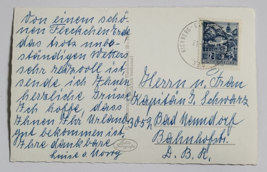 Von einem schö-
nen Fleckchen Erde
das trotz unbe-
ständigen Wetters
sehr reizvoll ist,
sende ich Ihnen
herzliche Grüsse
Ich hoffe, dass
Ihnen Ihr Urlaub
gut bekommen ist,
Ihre dankbare
Herrn u. Frau
Kapitän Schwarz
3052 Bad Nenndorf
Bahnhofstr.
D.B.R.